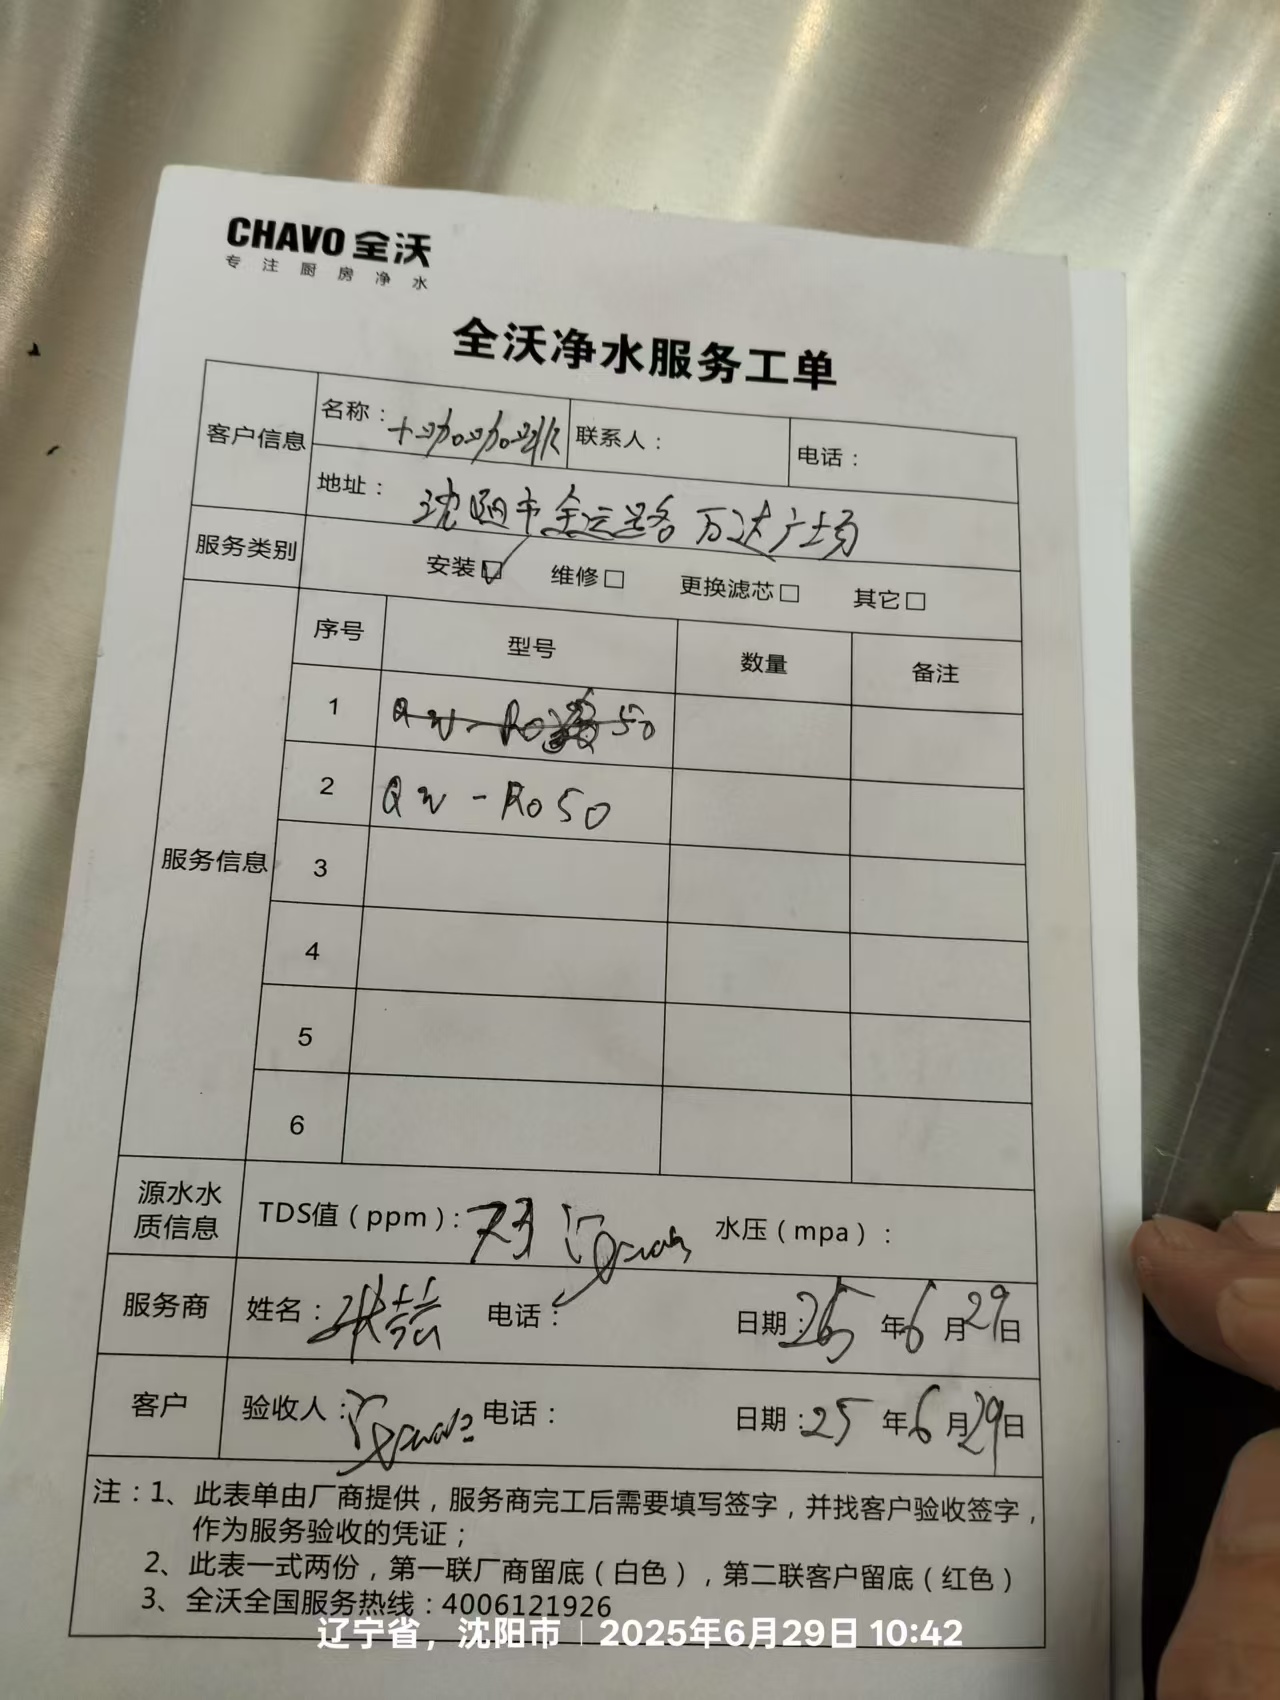 CHAVO 全沃
专注厨房净水
全沃净水服务工单
客户信息 名称： 联系人： 电话：
地址： 沈阳市全运路万达广场
服务类别 安装☑ 维修□ 更换滤芯□ 其它□
服务信息 序号 型号 数量 备注
1 QW-RO 50
2 QW-RO50
3
4
5
6
源水水质信息 TDS值（ppm）：73 水压（mpa）：
服务商 姓名：张喆 电话： 日期：25年6月29日
客户 验收人： 电话： 日期：25年6月29日
注：1、此表单由厂商提供，服务商完工后需要填写签字，并找客户验收签字，
作为服务验收的凭证；
2、此表一式两份，第一联厂商留底（白色），第二联客户留底（红色）
3、全沃全国服务热线：4006121926
辽宁省，沈阳市 | 2025年6月29日 10:42